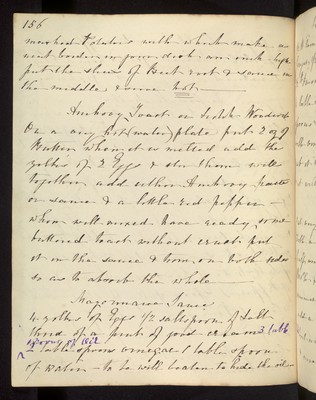 156
mashed Potatoes with which make a
neat border in your dish an inch high
put the slices of Beet root & sauce in
the middle & serve hot.
Anchovy Toast or Scotch Woodcock
On a very hot water plate put 2 oz of
Butter when it is melted add the
yolks of 2 Eggs & stir them well
together add either Anchovy paste
or sauce & a little red pepper
when well mixed have ready some
buttered toast without crust put
it on the sauce & turn on both sides
so as to absorb the whole
Mayonnaise Sauce
4 yolks of Eggs 1/2 saltspoon of Salt
third of a pint of good cream 3 table
spoons of Oil
2 table spoons vinegar 1 table spoon
of water to be well beaten to hide the oil